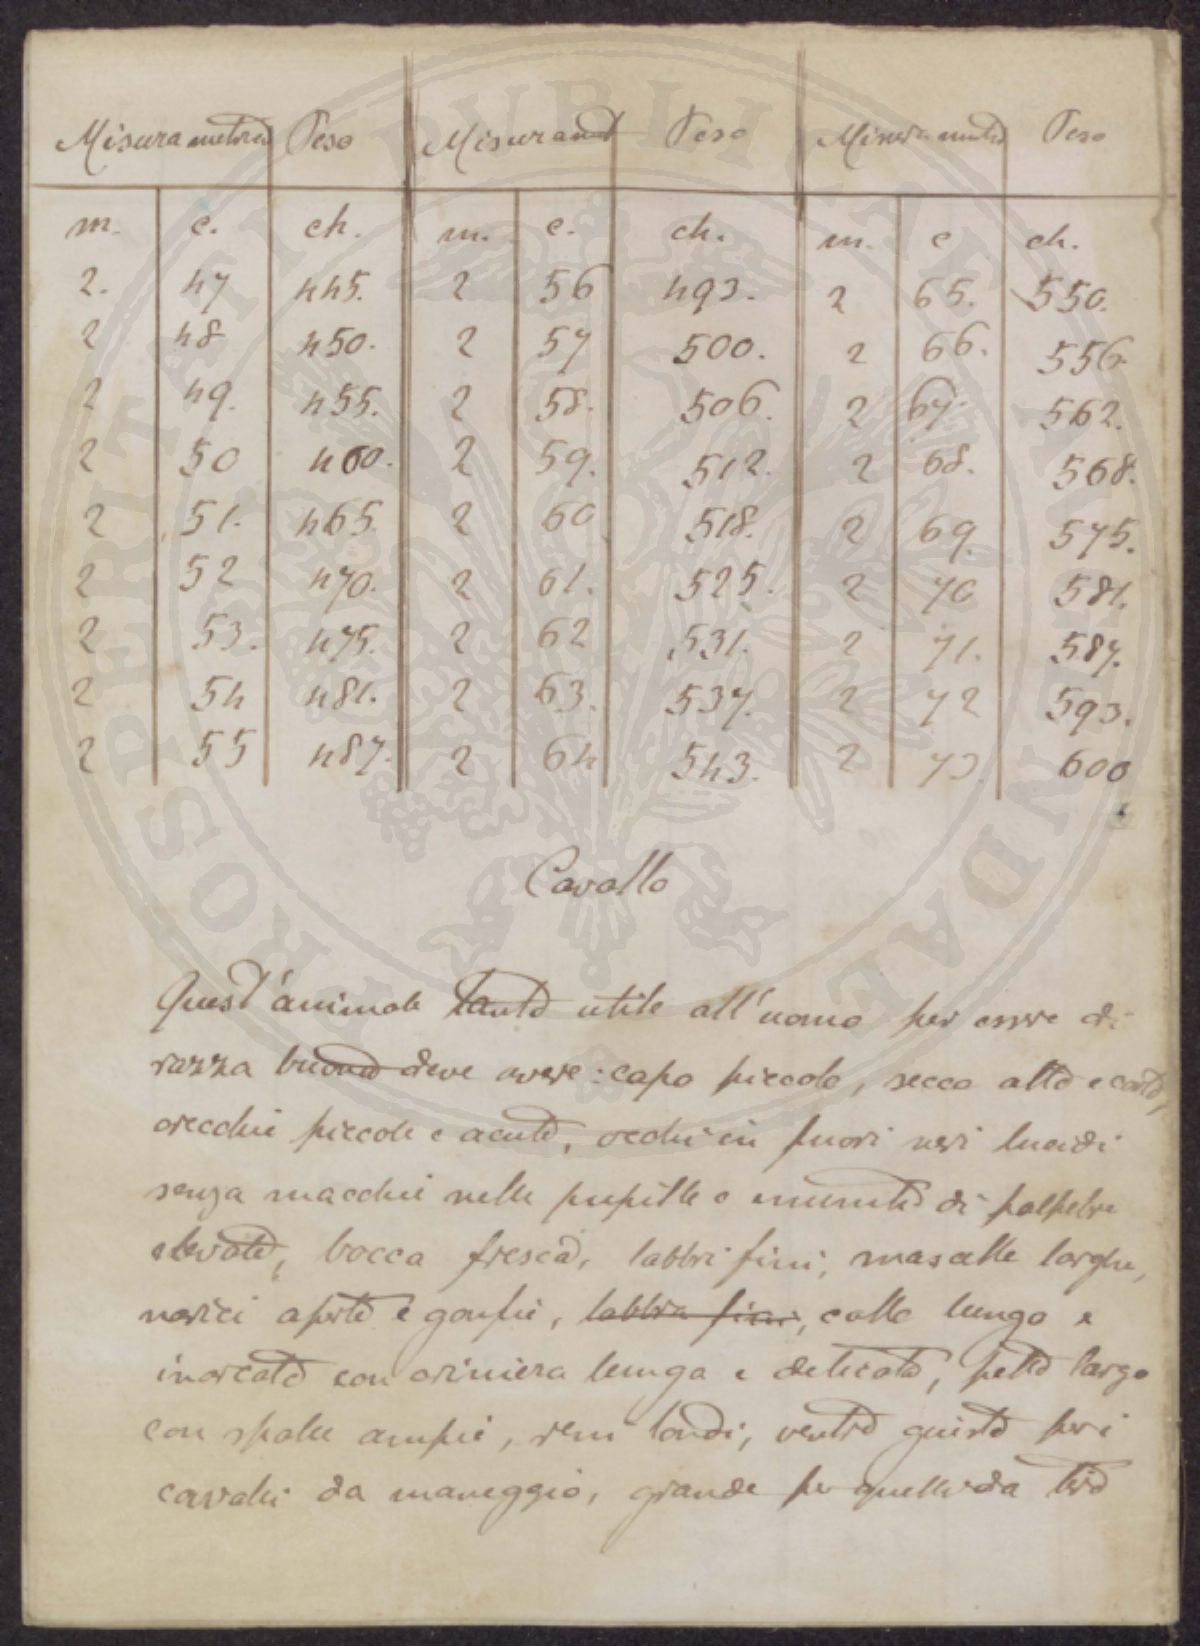 Misura metrica Peso Misura met Peso Misura metr Peso
m. c. ch. m. c. ch. m. c ch.
2. 47 445. 2 56 493. 2 65. 550.
2 48 450. 2 57 500. 2 66. 556
2 49. 455. 2 58. 506. 2 67. 562.
2 50 460. 2 59. 512. 2 68. 568.
2 51. 465. 2 60 518. 2 69. 575.
2 52 470. 2 61. 525. 2 70 581.
2 53. 475. 2 62 531. 2 71. 587.
2 54 481. 2 63. 537. 2 72 593.
2 55 487. 2 64 543. 2 73. 600
Cavallo
Quest'animale tanto utile all'uomo per essere di
razza buona deve avere: capo piccolo, secco alto e corto,
orecchie piccole e acute, occhi in fuori neri lucidi
senza macchie nelle pupille e munite di palpebre
elevate, bocca fresca, labbri fini, mascelle larghe,
narici aperte e gonfie, labbra fini, collo lungo e
inarcato con criniera lunga e delicata, petto largo
con spalle ampie, reni tondi, ventre giusto per i
cavalli da maneggio, grande per quelli da tiro
PROSPERITATI PUBLICAE AUGENDAE